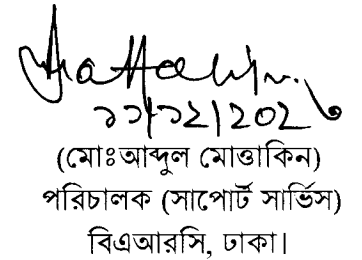 ১১/১২/২০২
(মোঃআব্দুল মোত্তাকিন)
পরিচালক (সাপোর্ট সার্ভিস)
বিএআরসি, ঢাকা।